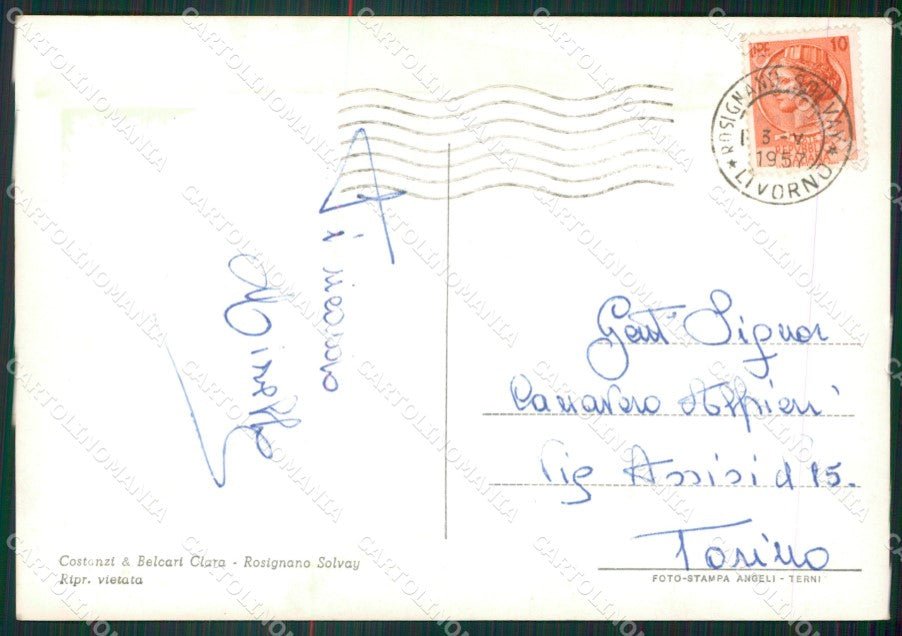 LIRE 10
ROSIGNANO SOLVAY
3 - V
1957
LIVORNO
Gent Signor
Cannavero Alfieri
Via Assisi d 15.
Torino
Costanzi & Belcari Clara - Rosignano Solvay
Ripr. vietata
FOTO-STAMPA ANGELI - TERNI
CARTOLINOMANIA